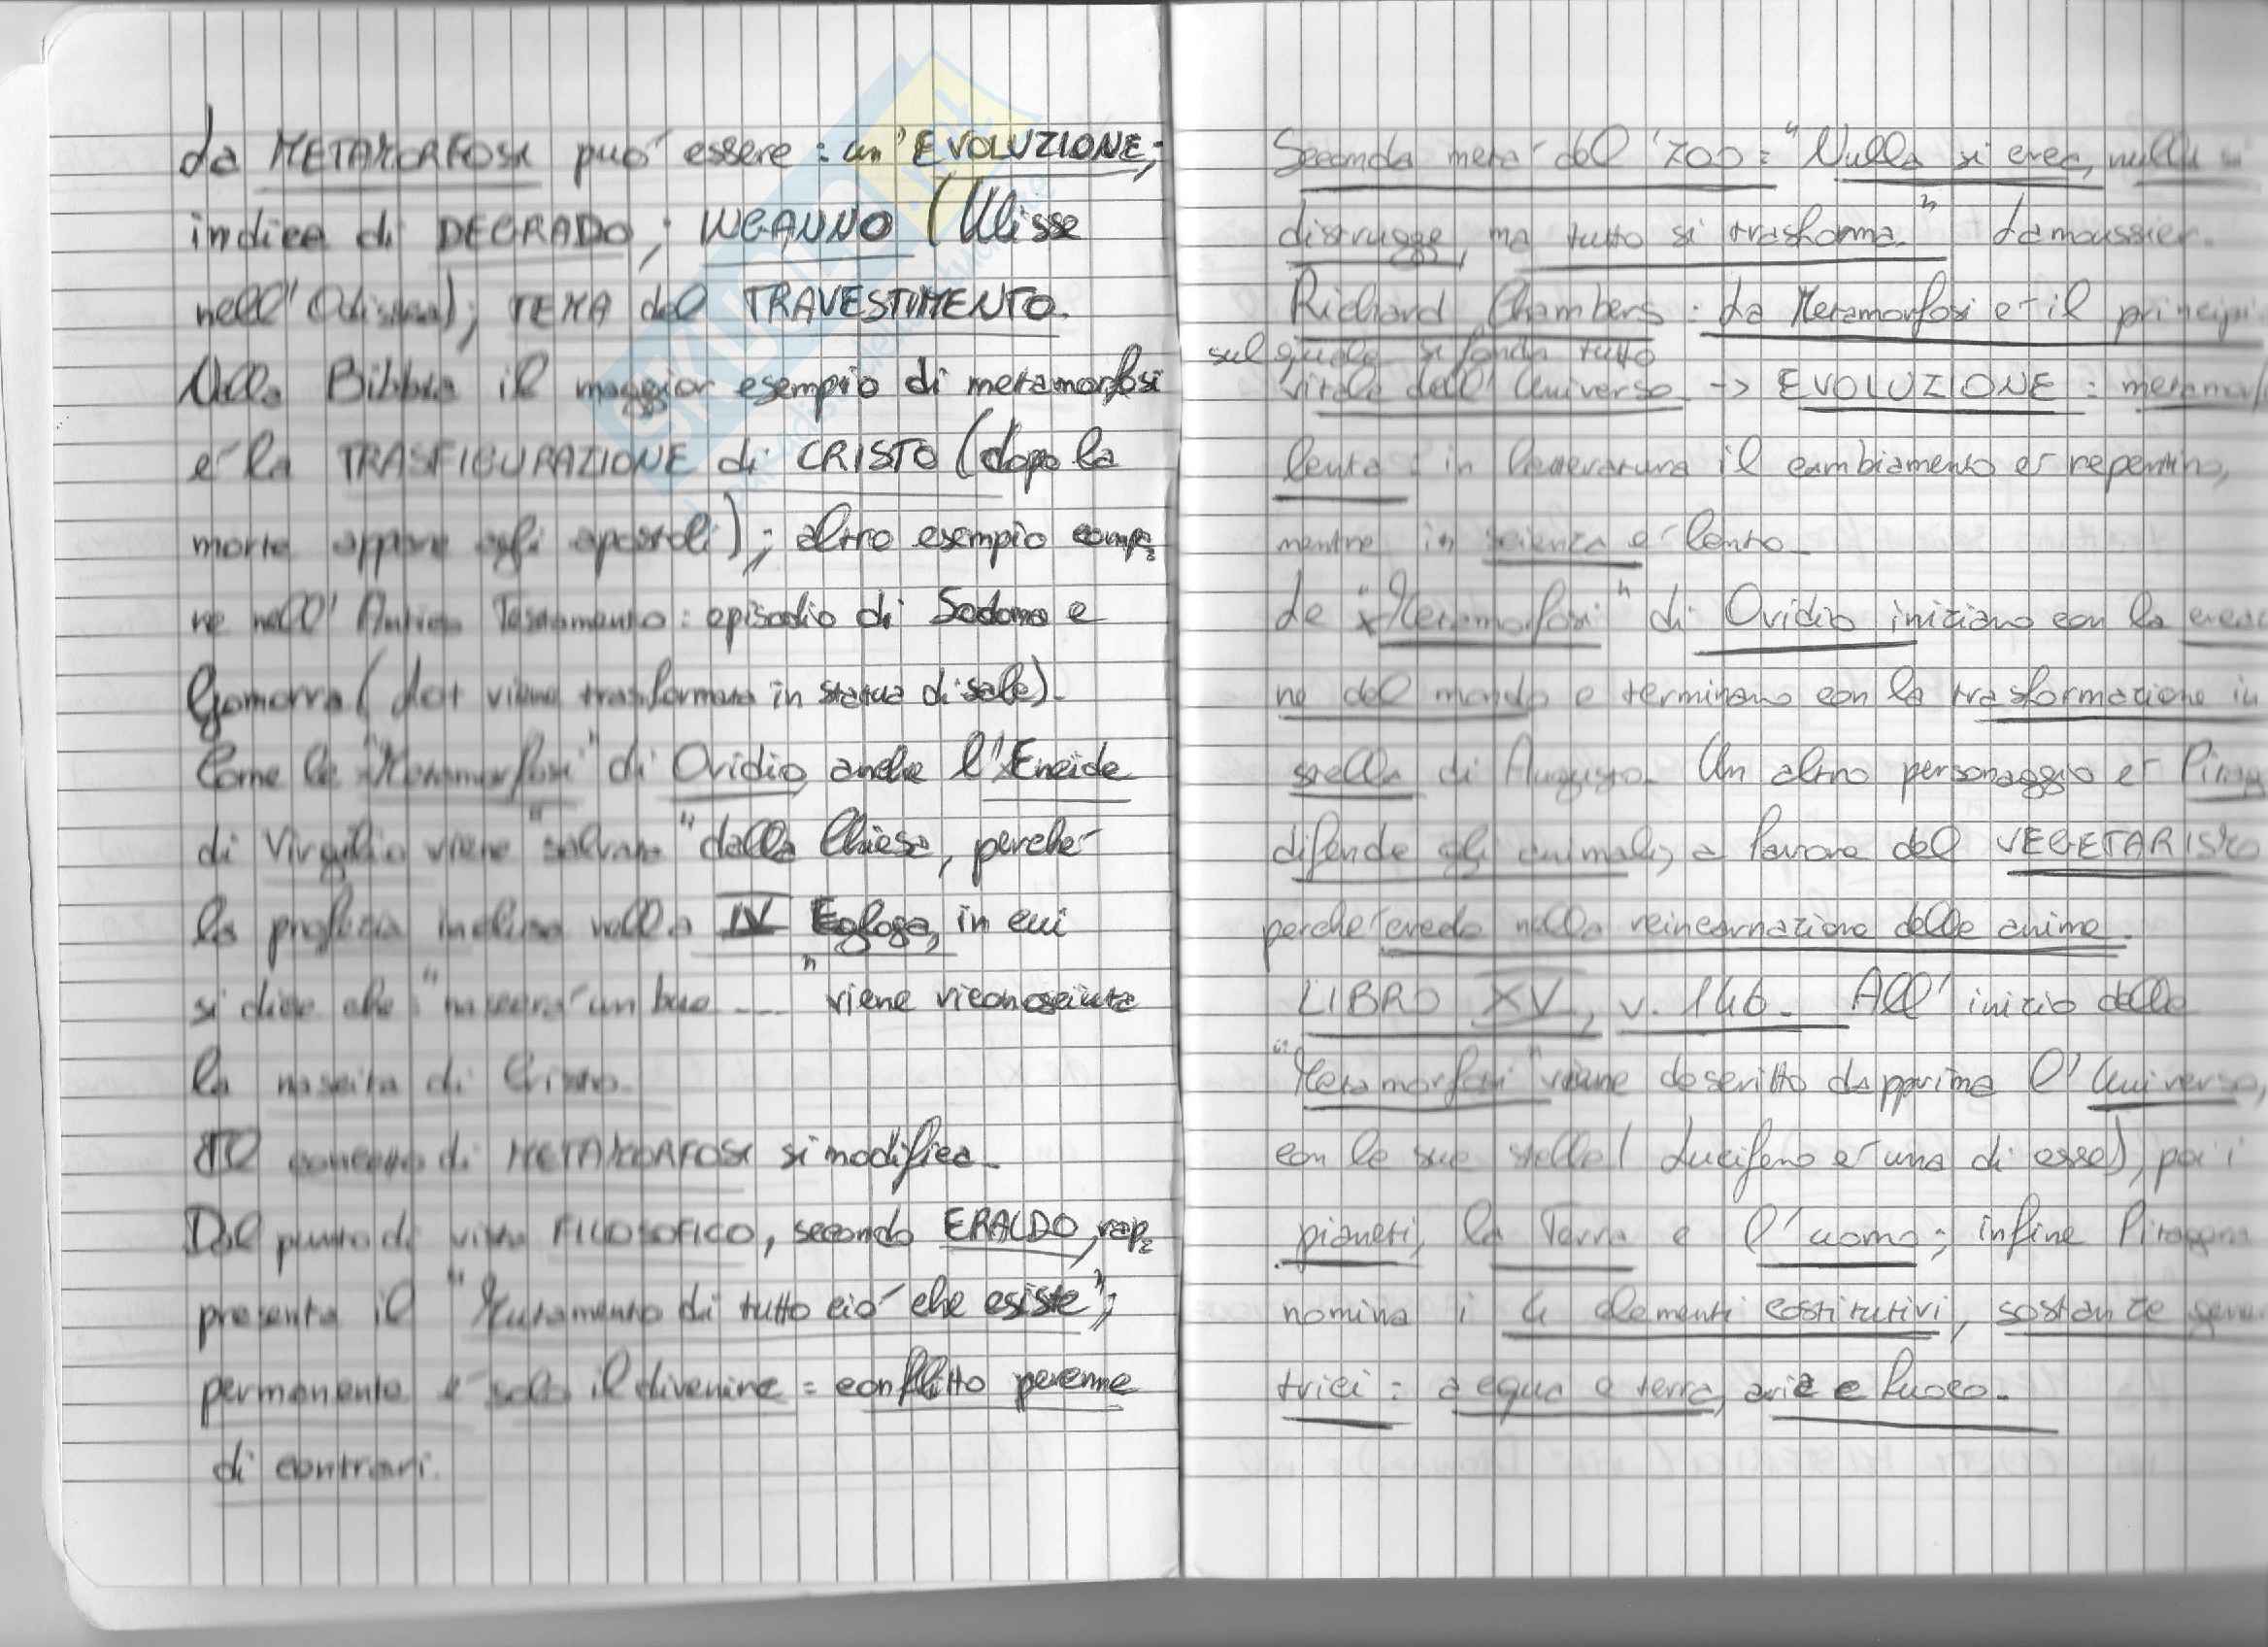 La METAMORFOSI può essere: un'EVOLUZIONE;
indice di DEGRADO; INGANNO (Ulisse
nell'Odissea); TEMA del TRAVESTIMENTO.
Nella Bibbia il maggior esempio di metamorfosi
è la TRASFIGURAZIONE di CRISTO (dopo la
morte appare agli apostoli); altro esempio compa
re nell'Antico Testamento: episodio di Sodoma e
Gomorra (Lot viene trasformata in statua di sale).
Come le "Metamorfosi" di Ovidio anche l'Eneide
di Virgilio viene "salvata" dalla Chiesa, perché
la profezia inclusa nella IV Egloga, in cui
si dice che "nascerà un bue ...." viene riconosciuta
la nascita di Cristo.
Il concetto di METAMORFOSI si modifica.
Dal punto di vista FILOSOFICO, secondo ERALDO, rap
presenta il "Mutamento di tutto ciò che esiste";
permanente è solo il divenire = conflitto perenne
di contrari.
Seconda metà del '700: "Nulla si crea, nulla si
distrugge, ma tutto si trasforma." Lamoussier.
Richard Chambers: La Metamorfosi è il principi
sul quale si fonda tutto
vitale dell'Universo -> EVOLUZIONE: metamorf
lenta: in letteratura il cambiamento è repentino,
mentre in scienza è lento.
Le "Metamorfosi" di Ovidio iniziano con la creaz
ne del mondo e terminano con la trasformazione in
stella di Augusto. Un altro personaggio è Pitag
difende gli animali, a favore del VEGETARISMO
perché crede nella reincarnazione delle anime.
LIBRO XV, v. 146. All'inizio delle
"Metamorfosi" viene descritto dapprima l'Universo,
con le sue stelle (Lucifero è una di esse), poi i
pianeti, la Terra e l'uomo; infine Pitagora
nomina i 4 elementi costitutivi, sostanze gene
trici: acqua e terra, aria e fuoco.